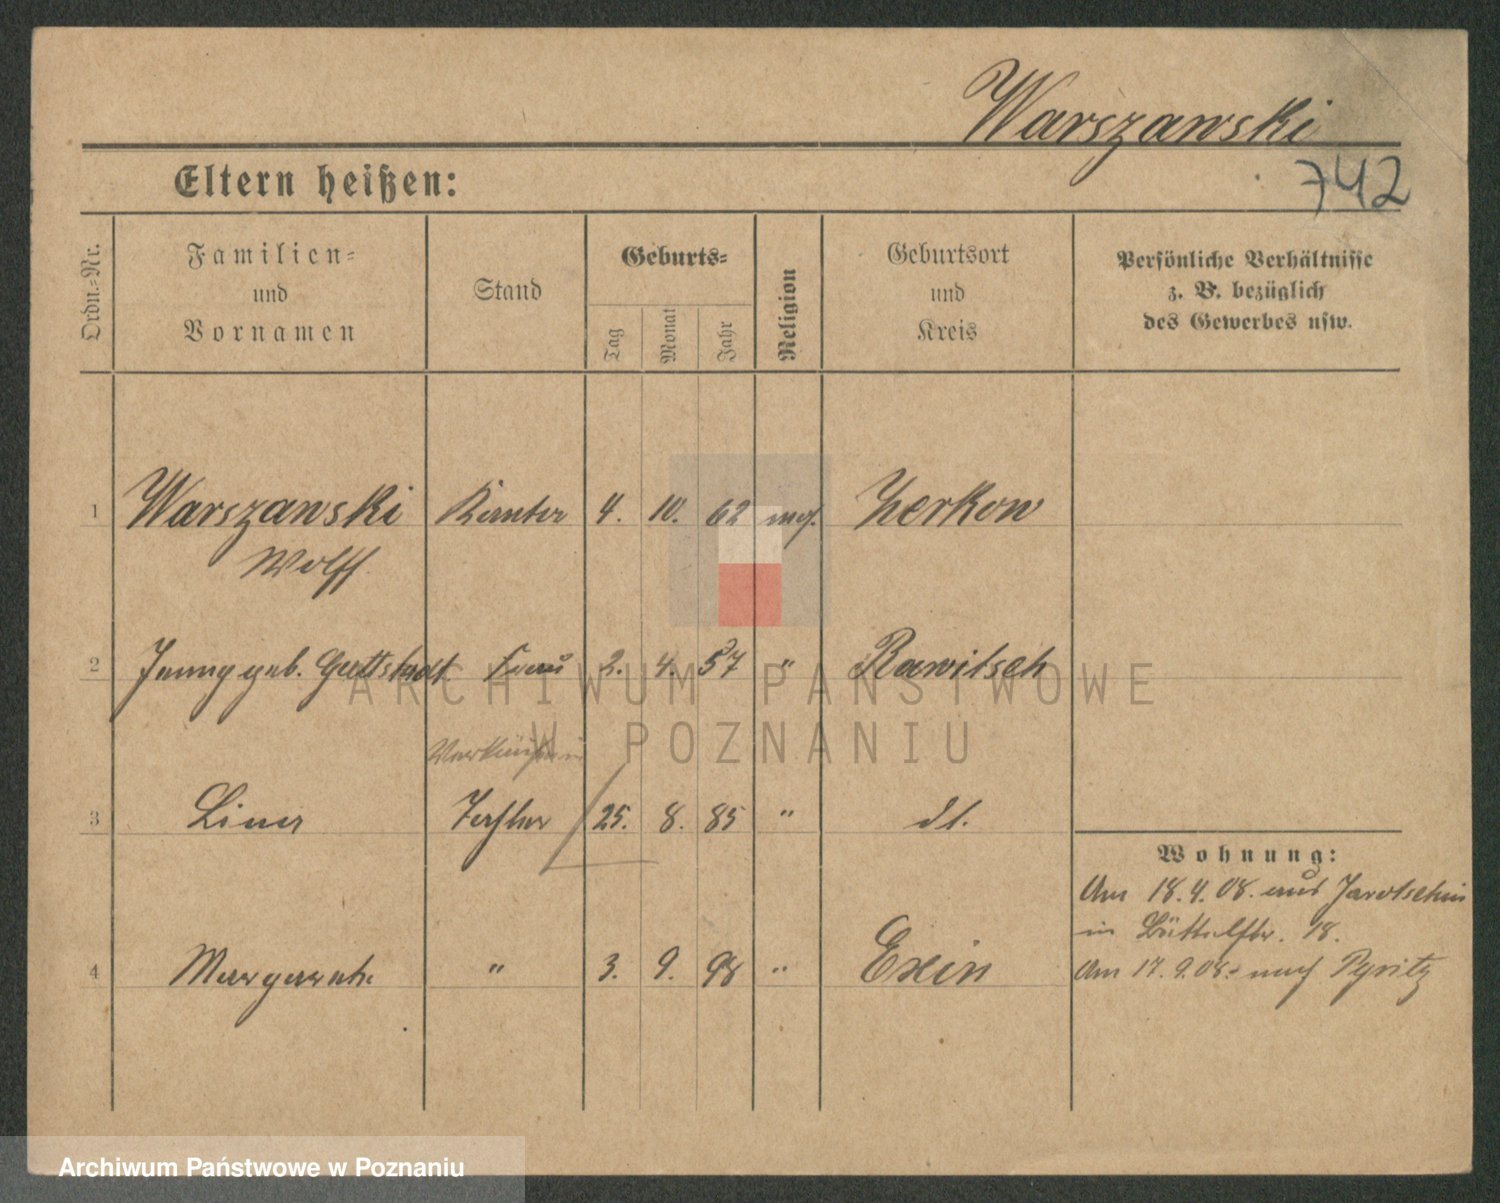 Warszawski
742
Eltern heißen:
Ordn.-Nr.
Familien-
und
Vornamen
Stand
Geburts-
Tag
Monat
Jahr
Religion
Geburtsort
und
Kreis
Persönliche Verhältnisse
z. B. bezüglich
des Gewerbes usw.
1 Warszawski 4. 10. 62 mos. Zerkow
Wolff.
2 Jenny geb. Guttstadt Frau 2. 4. 57 " Rawitsch
ARCHIWUM PAŃSTWOWE
W POZNANIU
Verkäuferin
3 Lina Tochter 25. 8. 85 " dt.
Wohnung:
Am 18.4.08. aus Jarotschin
in 18.
4 Margarete " 3. 9. 98 " Exin
Am 17.9.08. nach Pyritz
Archiwum Państwowe w Poznaniu